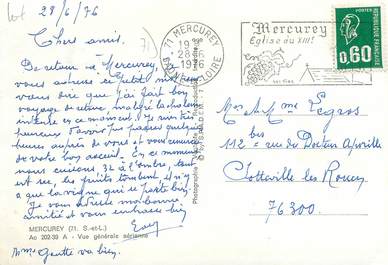 lot
28/6/76
71
Chers amis.
De retour de Mercurey, je
vous adresse ce petit mot pour
vous dire que j'ai fait bon
voyage de retour, malgré la chaleur
intense en ce moment. Je suis bien
heureux d'avoir pu passer quelques
heures auprès de vous et vous remercie
de votre bon accueil. En ce moment
nous avons 34 à l'ombre, tout
est sec, les fruits tombent il n'y
a que la vigne qui se porte bien.
Je vous adresse ma bonne
amitié et vous embrasse bien
MERCUREY (71. S.-et-L.)
Ac 202-39 A - Vue générale aérienne
Mme Goutte va bien.
71 MERCUREY
19 H
28-6
1976
SAONE-ET-LOIRE
Mercurey
Eglise du XIIIe
ses Vins
POSTES
0,60
REPUBLIQUE FRANÇAISE
Mr et Mme Legros
112 rue du Docteur
Sotteville les Rouen
76300